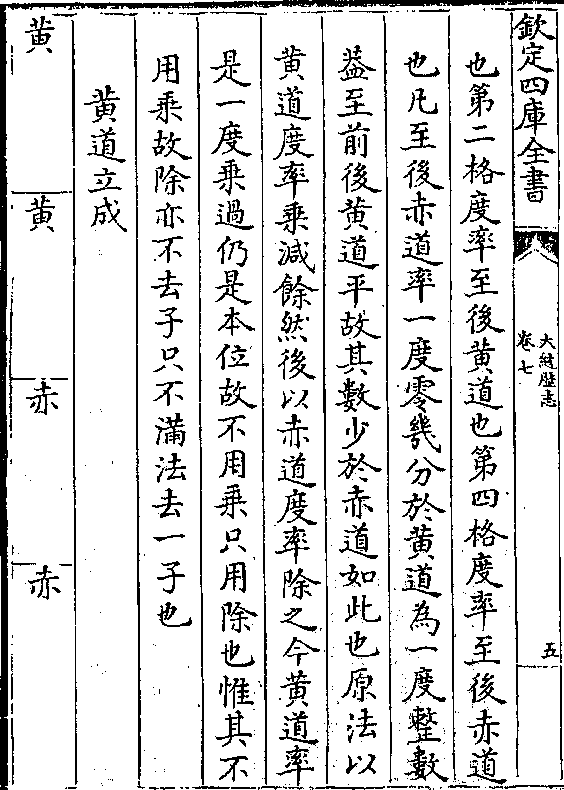 欽定四庫全書
大統歴志
卷七
五
也第二格度率至後黄道也第四格度率至後赤道
也凡至後赤道率一度零㡬分於黄道為一度整數
葢至前後黄道平故其數少於赤道如此也原法以
黄道度率乘減餘然後以赤道度率除之今黄道率
是一度乘過仍是本位故不用乘只用除也惟其不
用乘故除亦不去子只不滿法去一子也
黄道立成
黄
黄
赤
赤